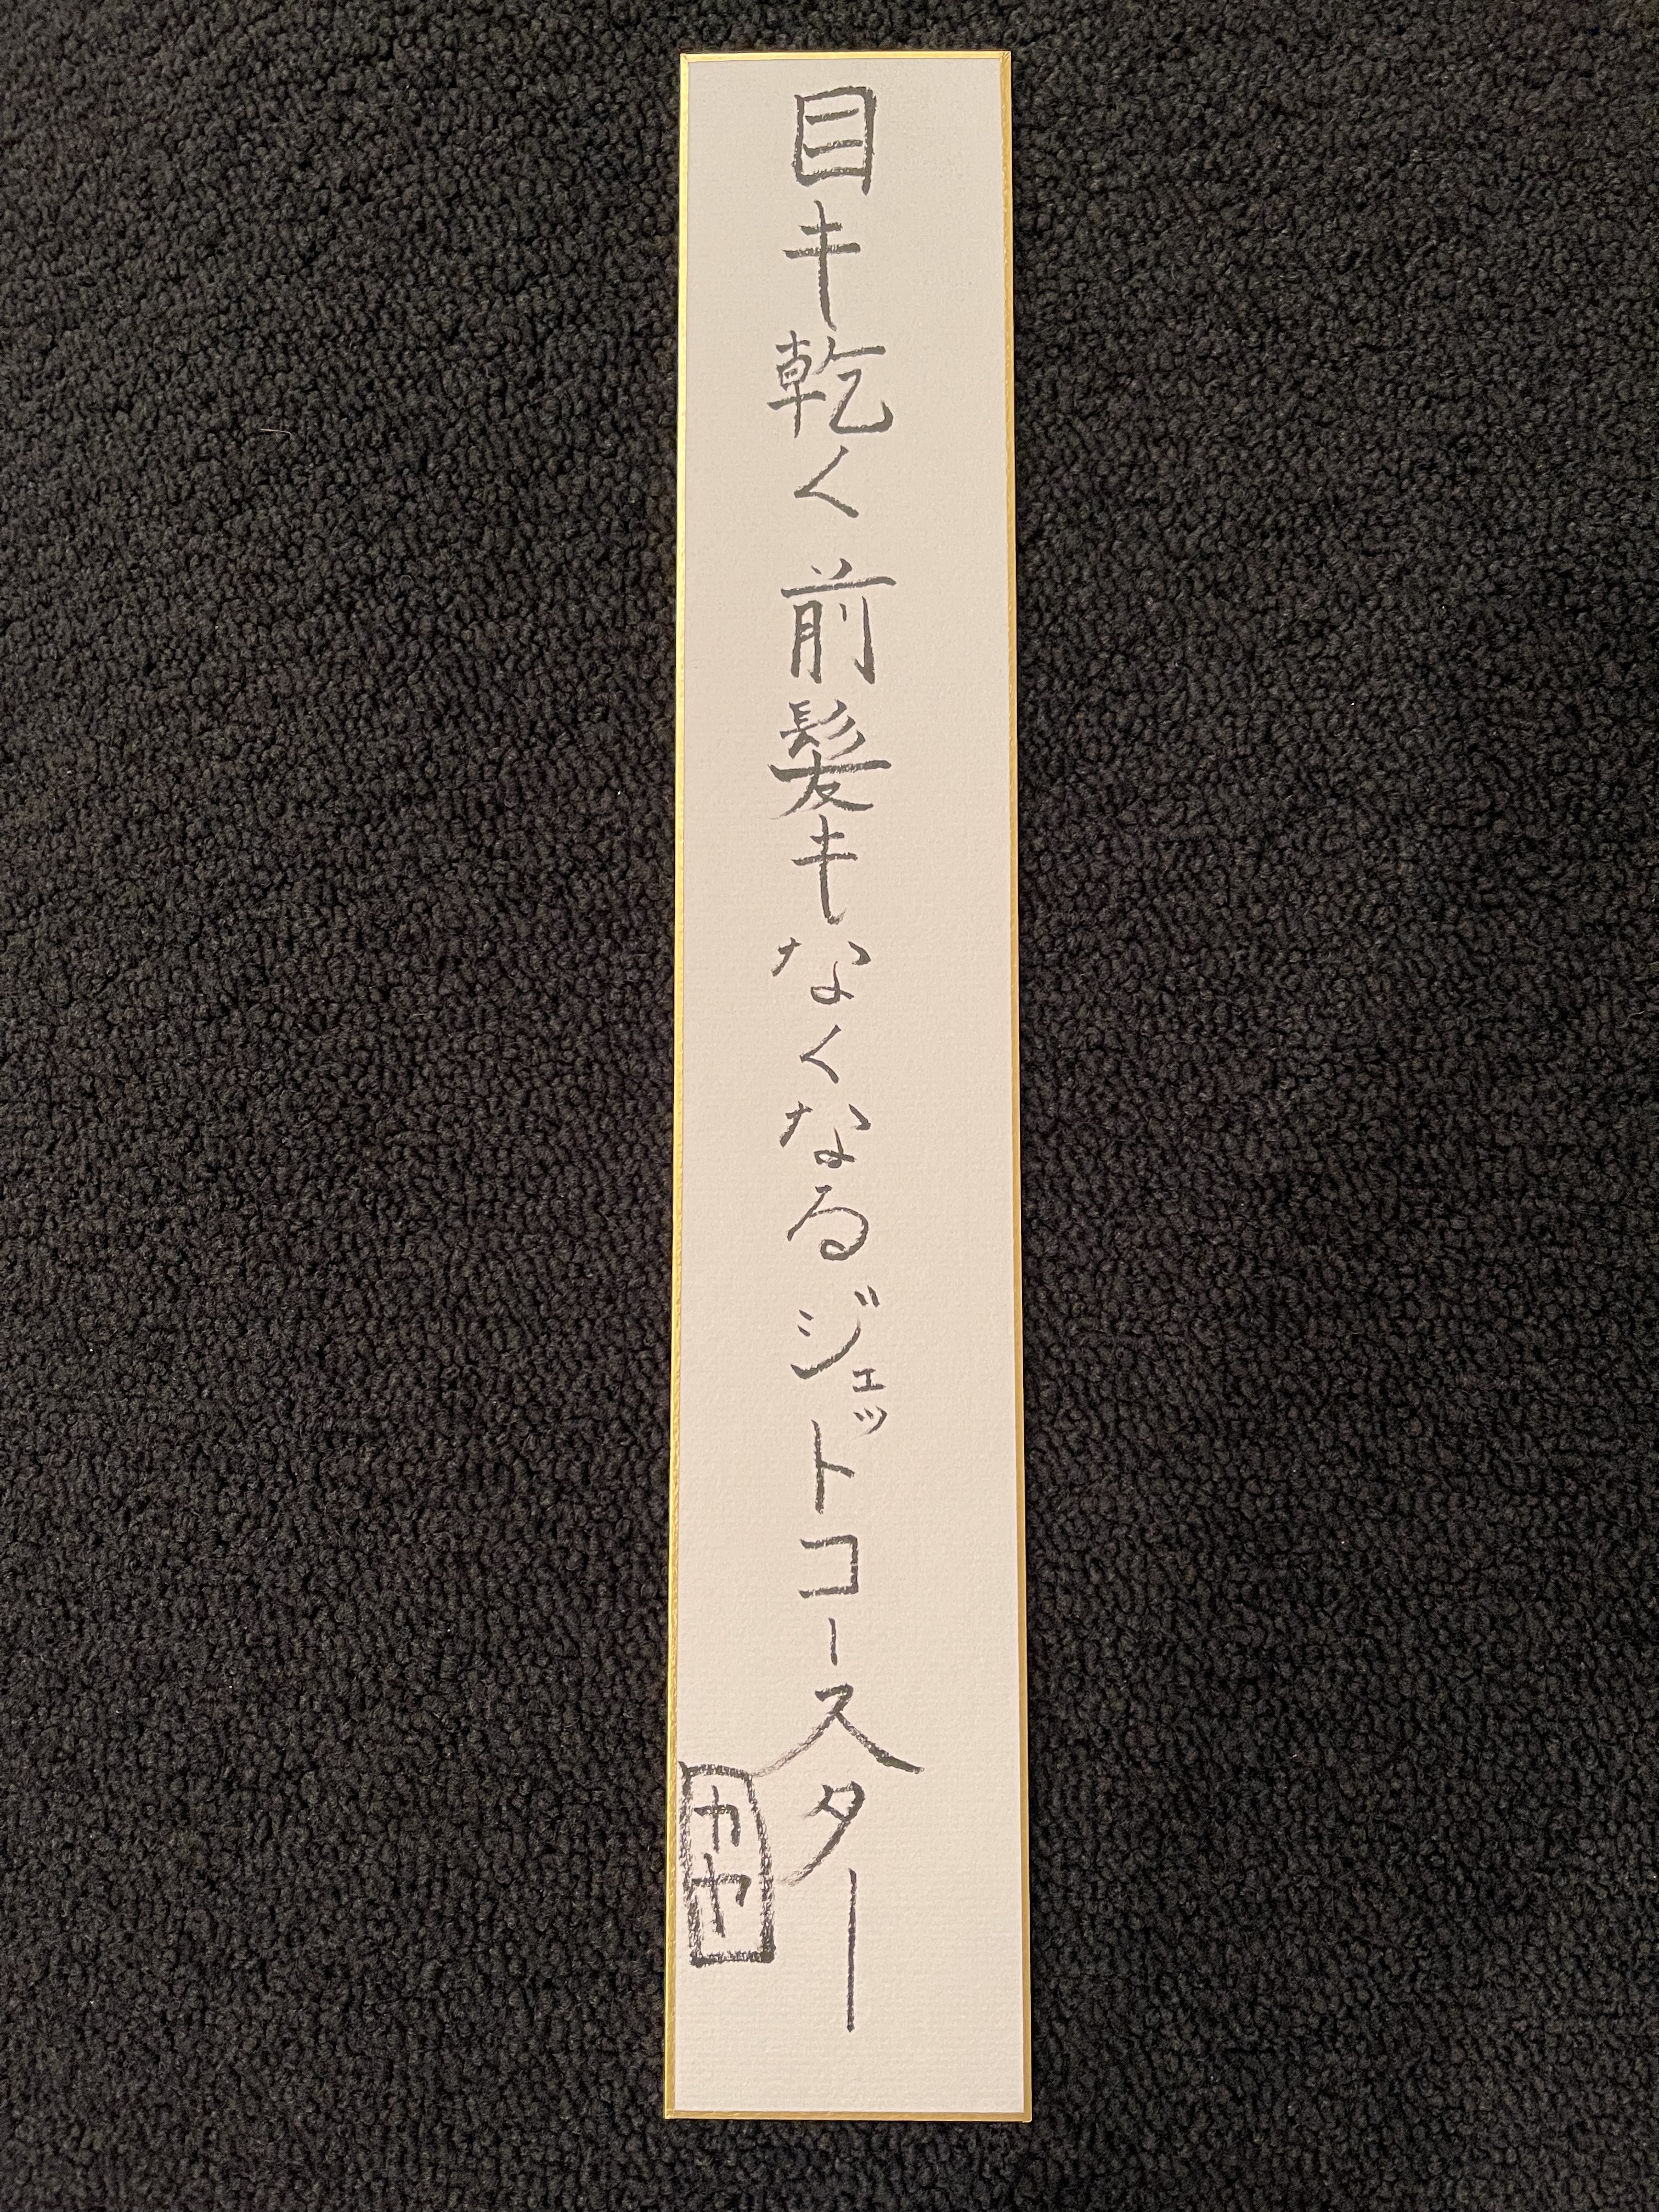 目も乾く前髪もなくなるジェットコースター
カヤ